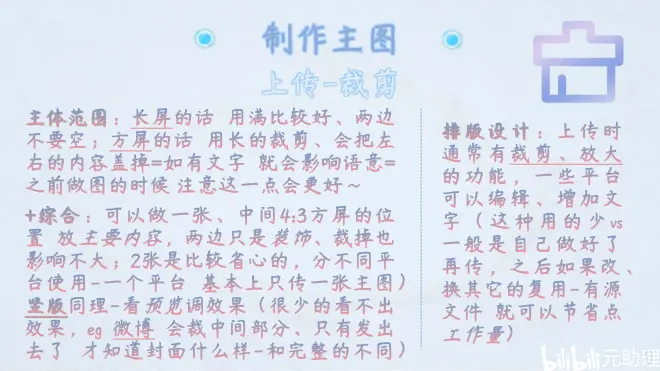 制作主图
上传-裁剪
主体范围：长屏的话 用满比较好、两边
不要空；方屏的话 用长的裁剪、会把左
右的内容盖掉=如有文字 就会影响语意=
之前做图的时候 注意这一点会更好~
+综合：可以做一张、中间4:3方屏的位
置 放主要内容，两边只是装饰、裁掉也
影响不大；2张是比较省心的，分不同平
台使用-一个平台 基本上只传一张主图）
竖版同理-看预览调效果（很少的看不出
效果，eg 微博 会裁中间部分、只有发出
去了 才知道封面什么样-和完整的不同）
排版设计：上传时
通常有裁剪、放大
的功能，一些平台
可以编辑、增加文
字（这种用的少vs
一般是自己做好了
再传，之后如果改、
换其它的复用-有源
文件 就可以节省点
工作量）
bilibili 元助理